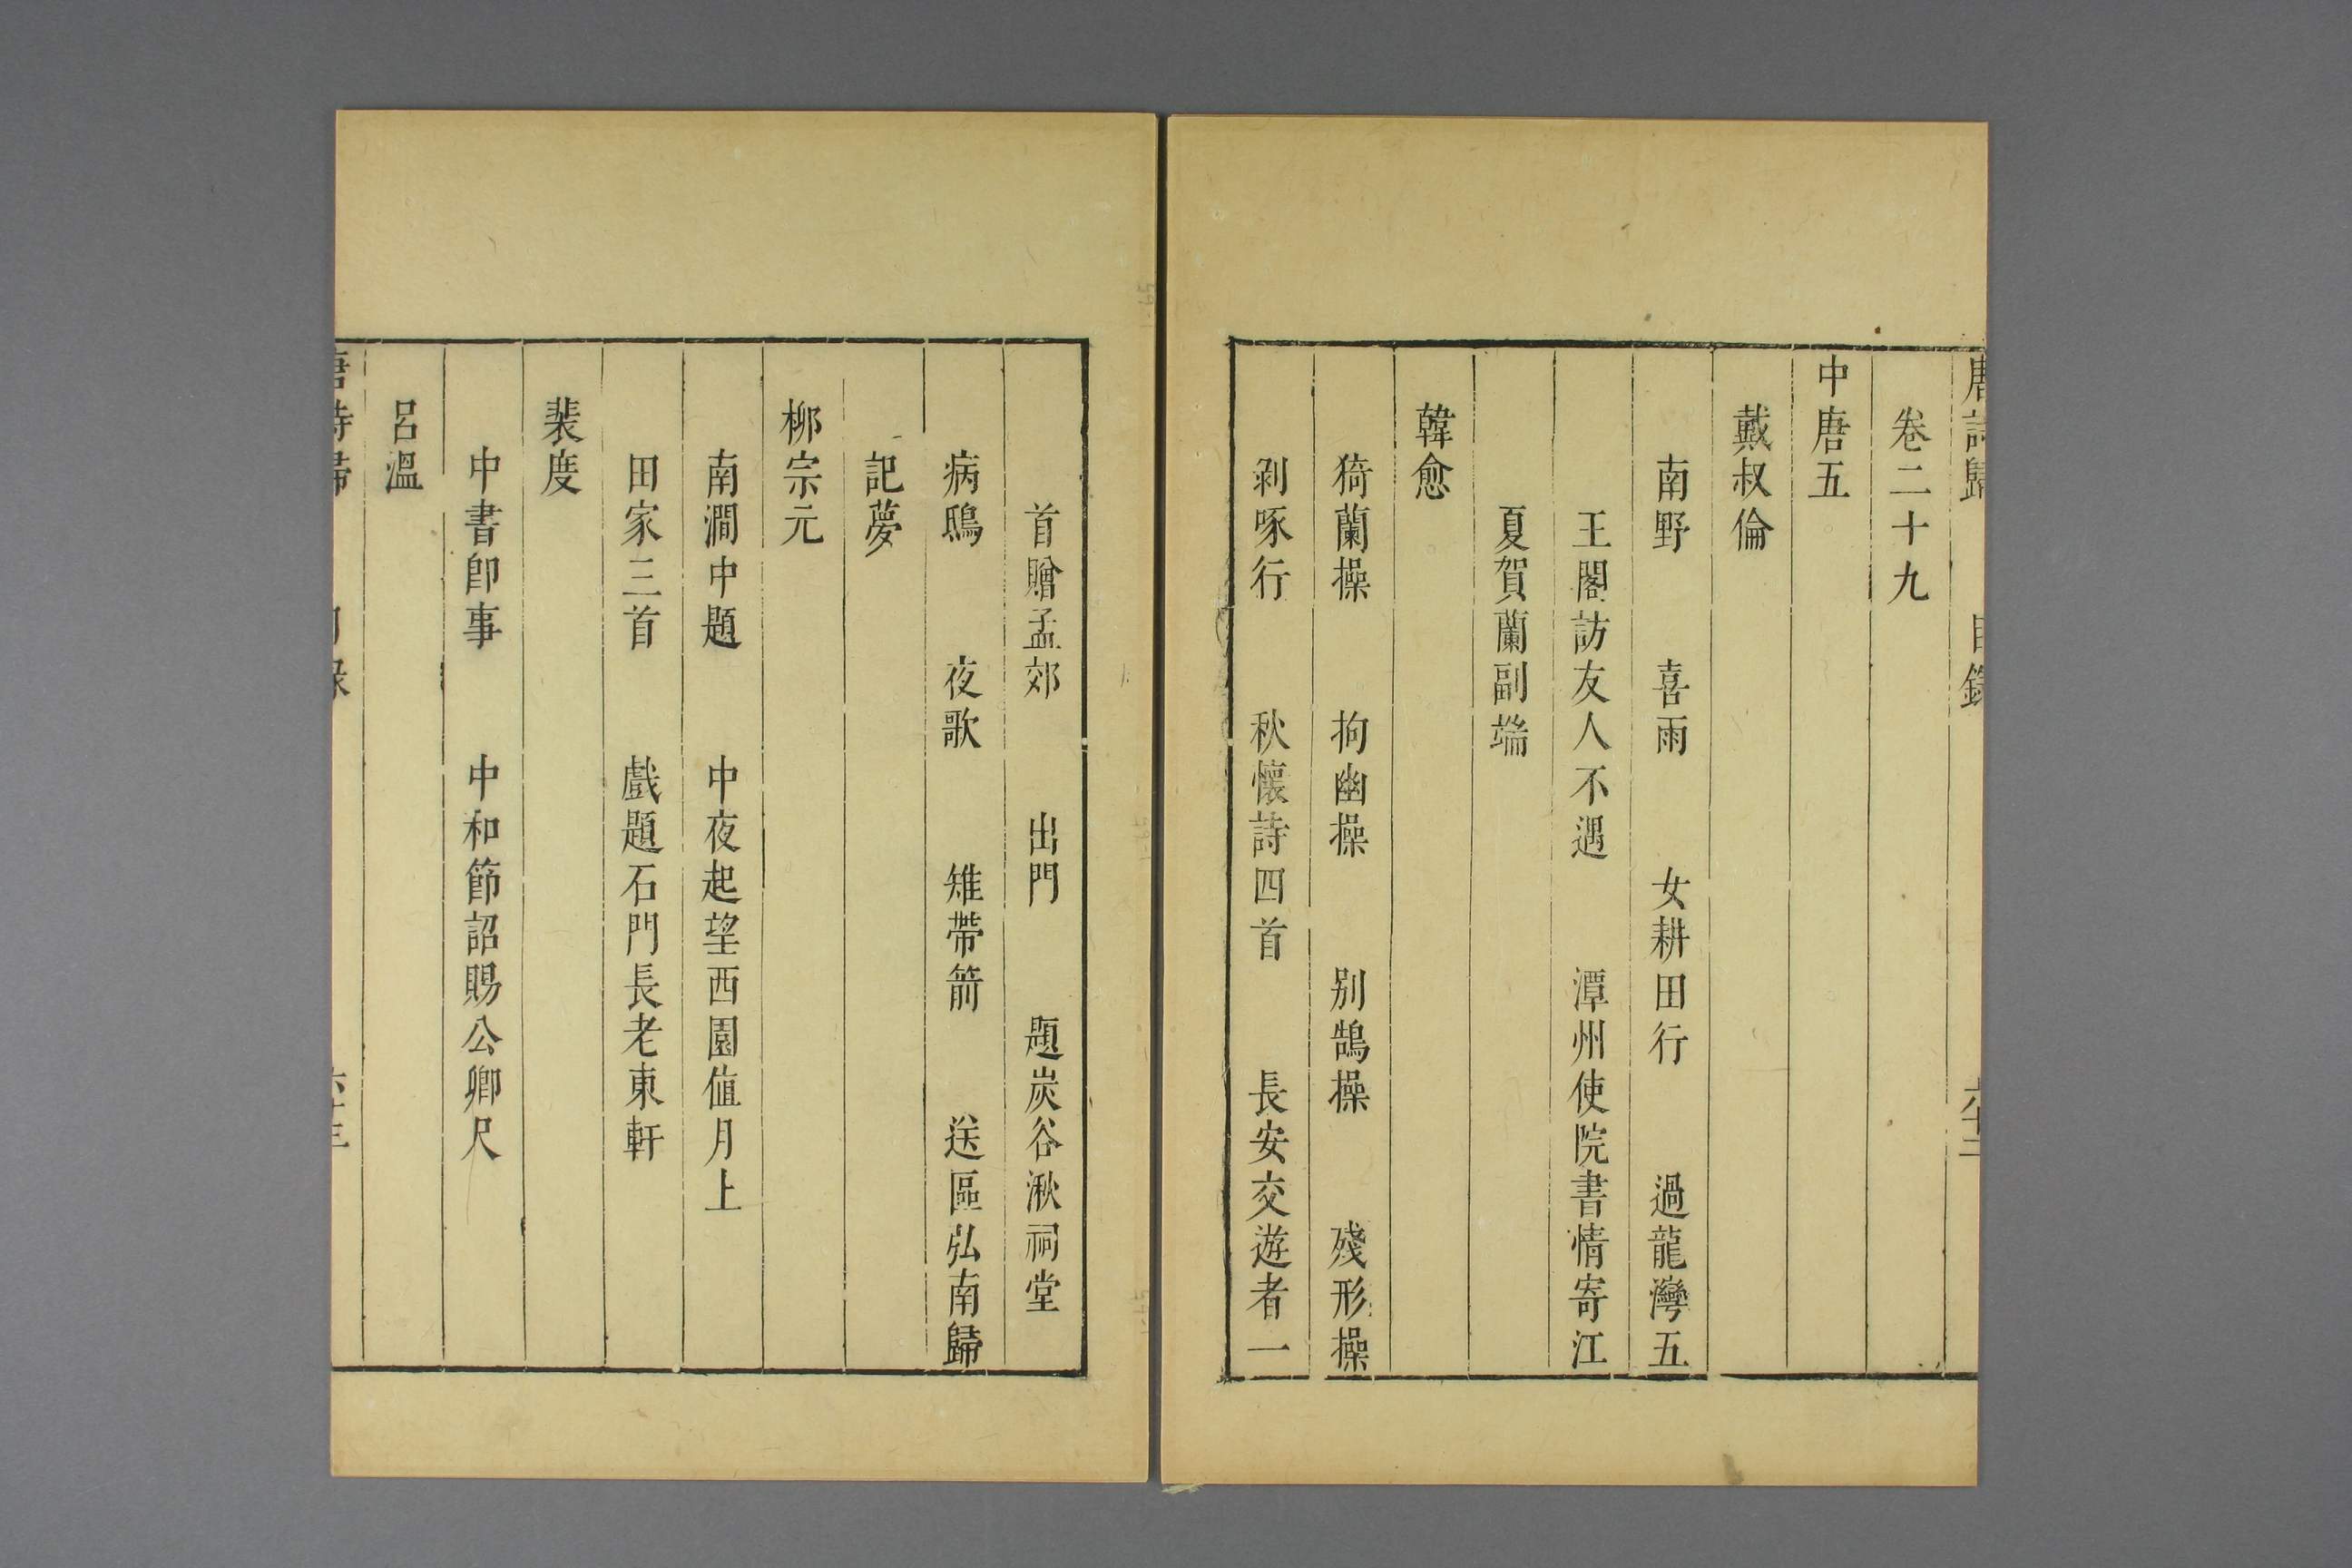 唐詩歸　目錄　六十二
卷二十九
中唐五
戴叔倫
南野　喜雨　女耕田行　過龍灣五
王閣訪友人不遇　潭州使院書情寄江
夏賀蘭副端
韓愈
猗蘭操　拘幽操　别鵠操　殘形操
剥啄行　秋懷詩四首　長安交遊者一
首贈孟郊　出門　題炭谷湫祠堂
病鴟　夜歌　雉帶箭　送區弘南歸
記夢
柳宗元
南澗中題　中夜起望西園值月上
田家三首　戲題石門長老東軒
裴度
中書卽事　中和節詔賜公卿尺
呂溫
唐詩歸　目錄